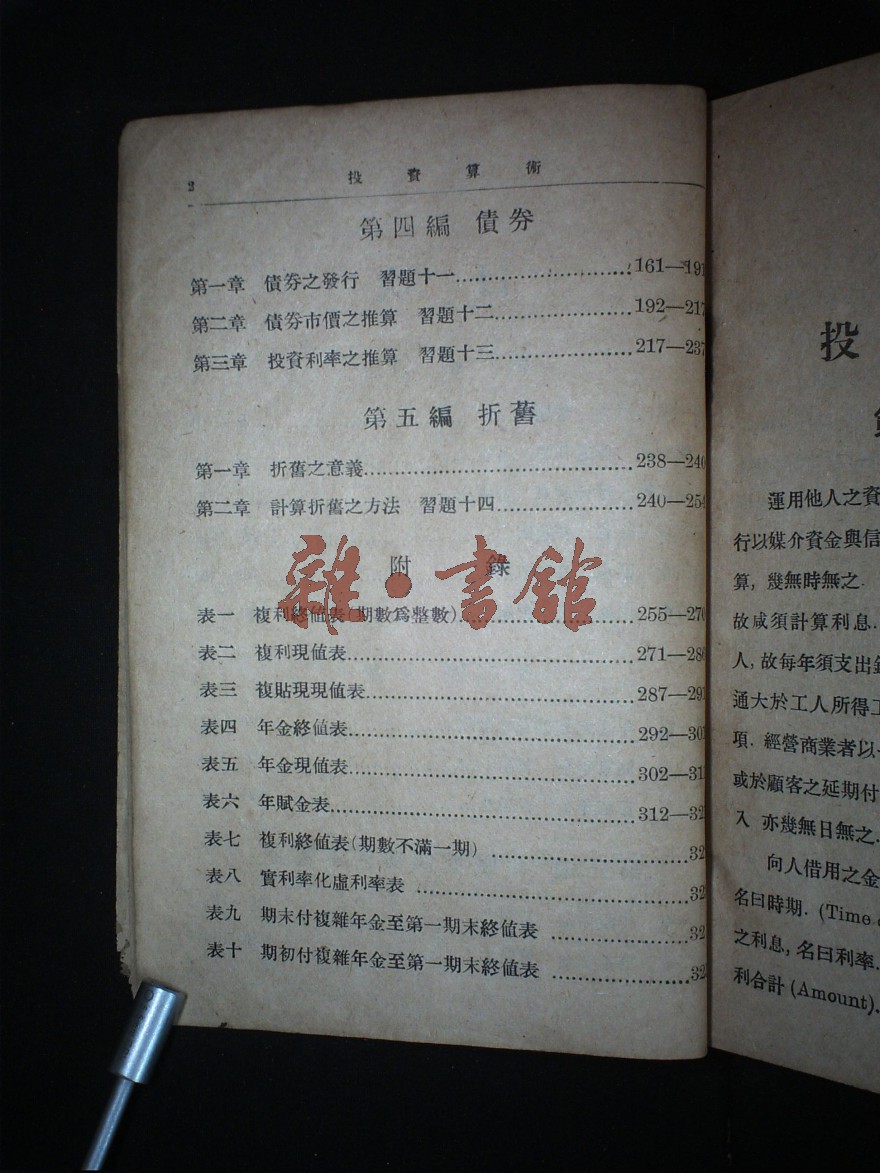 2 投資算術
第四編 債券
第一章 債券之發行 習題十一..............................161—191
第二章 債券市價之推算 習題十二........................192—217
第三章 投資利率之推算 習題十三........................217—237
第五編 折舊
第一章 折舊之意義..............................238—240
第二章 計算折舊之方法 習題十四........................240—254
附錄
雜·書館
表一 複利終値表(期數爲整數)........................255—270
表二 複利現値表..............................271—286
表三 複貼現現値表..............................287—291
表四 年金終値表..............................292—301
表五 年金現値表..............................302—311
表六 年賦金表..............................312—32
表七 複利終値表(期數不滿一期)........................32
表八 實利率化虛利率表..............................32
表九 期末付複雜年金至第一期末終値表..................32
表十 期初付複雜年金至第一期末終値表..................32
投
運用他人之資
行以媒介資金與信
算, 幾無時無之.
故咸須計算利息.
人, 故每年須支出
通大於工人所得工
項. 經營商業者以
或於顧客之延期付
入 亦幾無日無之.
向人借用之金
名曰時期. (Time
之利息, 名曰利率.
利合計 (Amount).